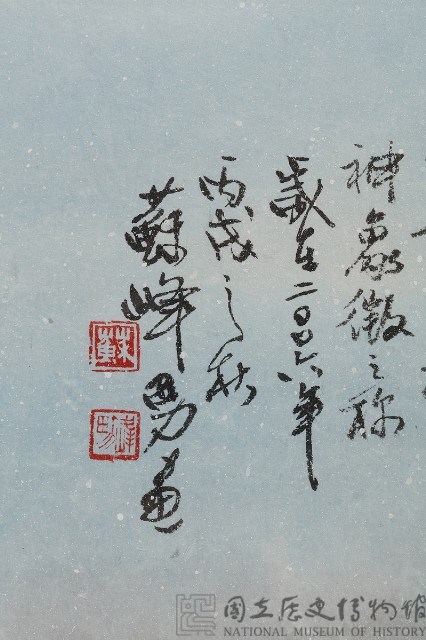 神象徵之稱
歲在二〇〇六年
丙戌之秋
蘇峰男畫
蘇
國立歷史博物館
NATIONAL MUSEUM OF HISTORY